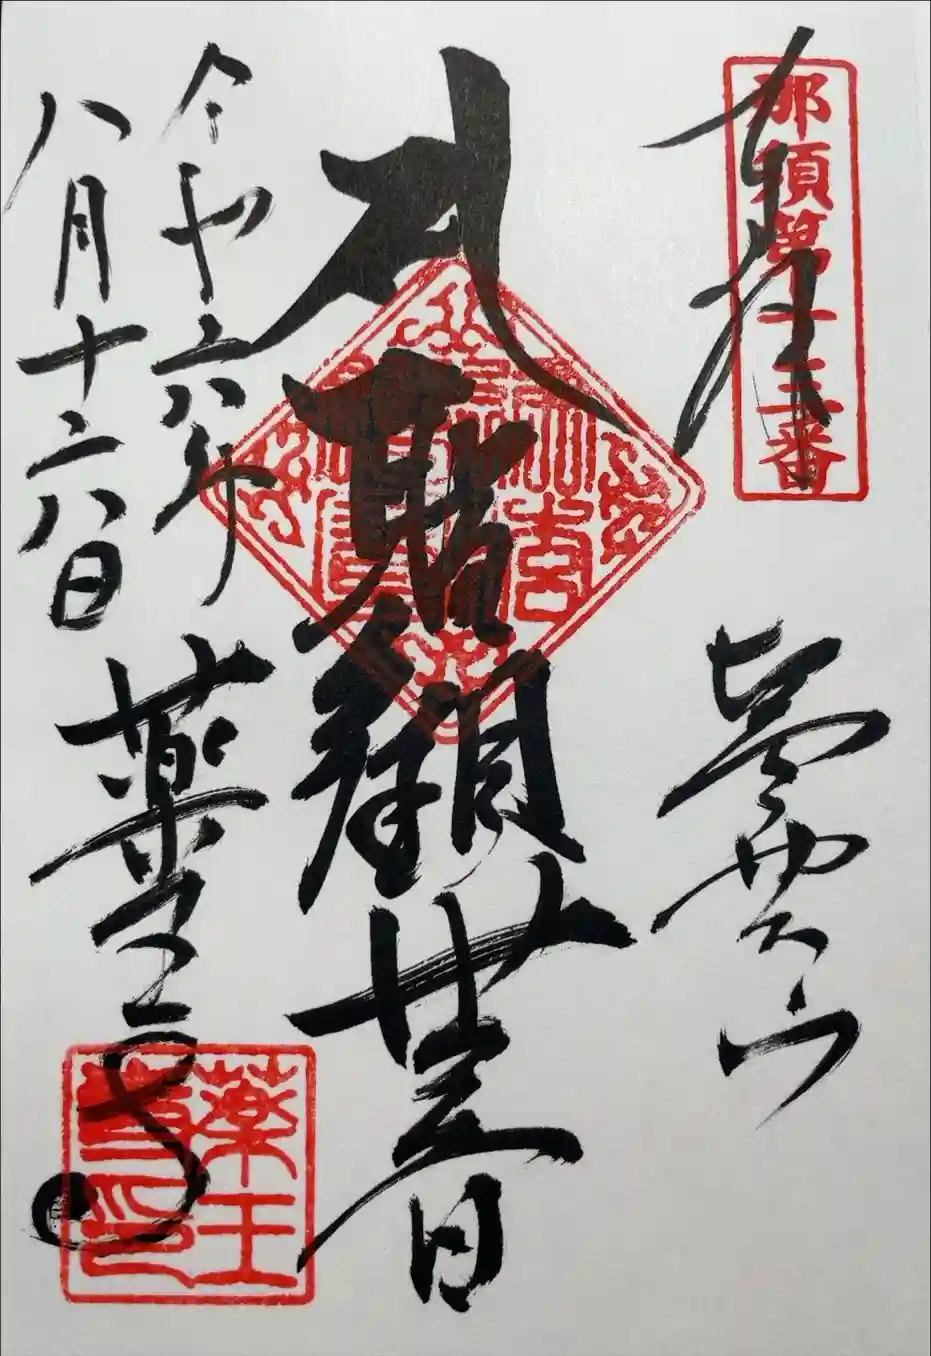 奉拝
那須第十三番
雲山
聖観世音
令和六年
八月十二八日
薬王寺
薬王寺印